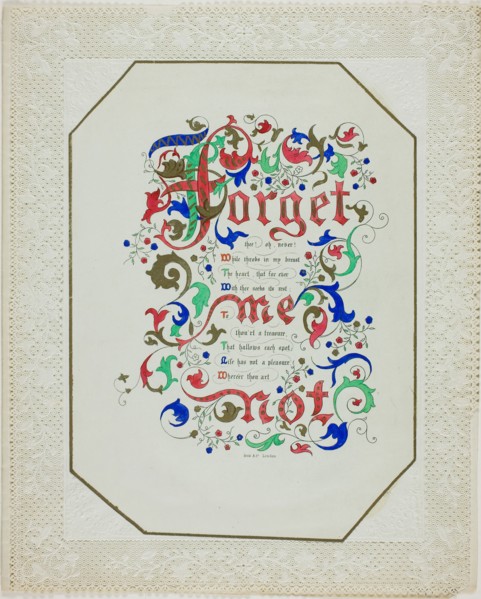 Forget
thee? oh, never!
While throbs in my breast
The heart, that for ever
With thee seeks its rest
me
thou'rt a treasure
That hallows each spot,
Life has not a pleasure
Where thou art
not
London